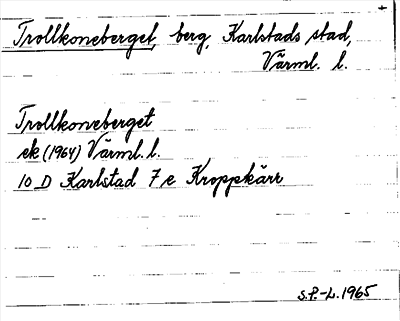 Trollkoneberget, berg, Karlstads stad,
Värml. l.
Trollkoneberget
ek (1964) Värml. l.
10 D Karlstad 7 e Kroppkärr
S.P.-L. 1965